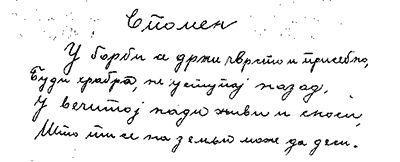 Спомен
У борби се држи чврсто и присебно,
Буди храбра, не уступај назад,
У вечитој нади живи и сноси,
Што ти се на земљи може да деси.